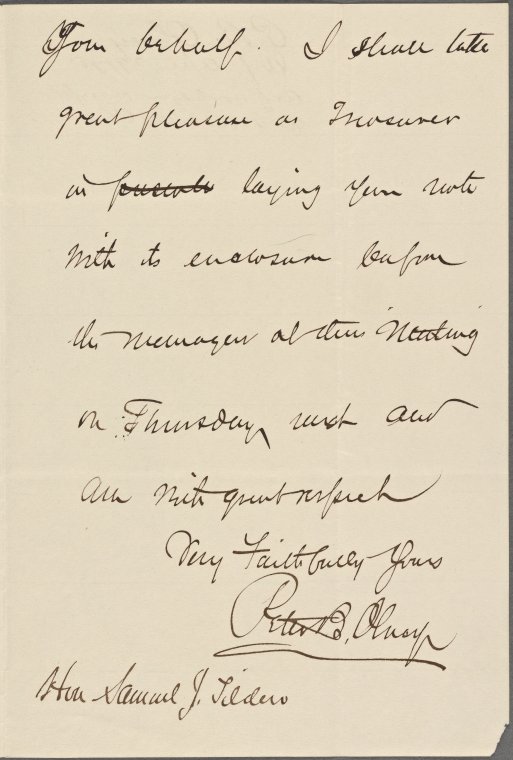 Your behalf. I shall take
great pleasure as Treasurer
in laying your note
with its enclosure before
the managers at their Meeting
on Thursday next and
am with great respect
Very Faithfully Yours
Peter B. Olney
Hon Samuel J. Tilden